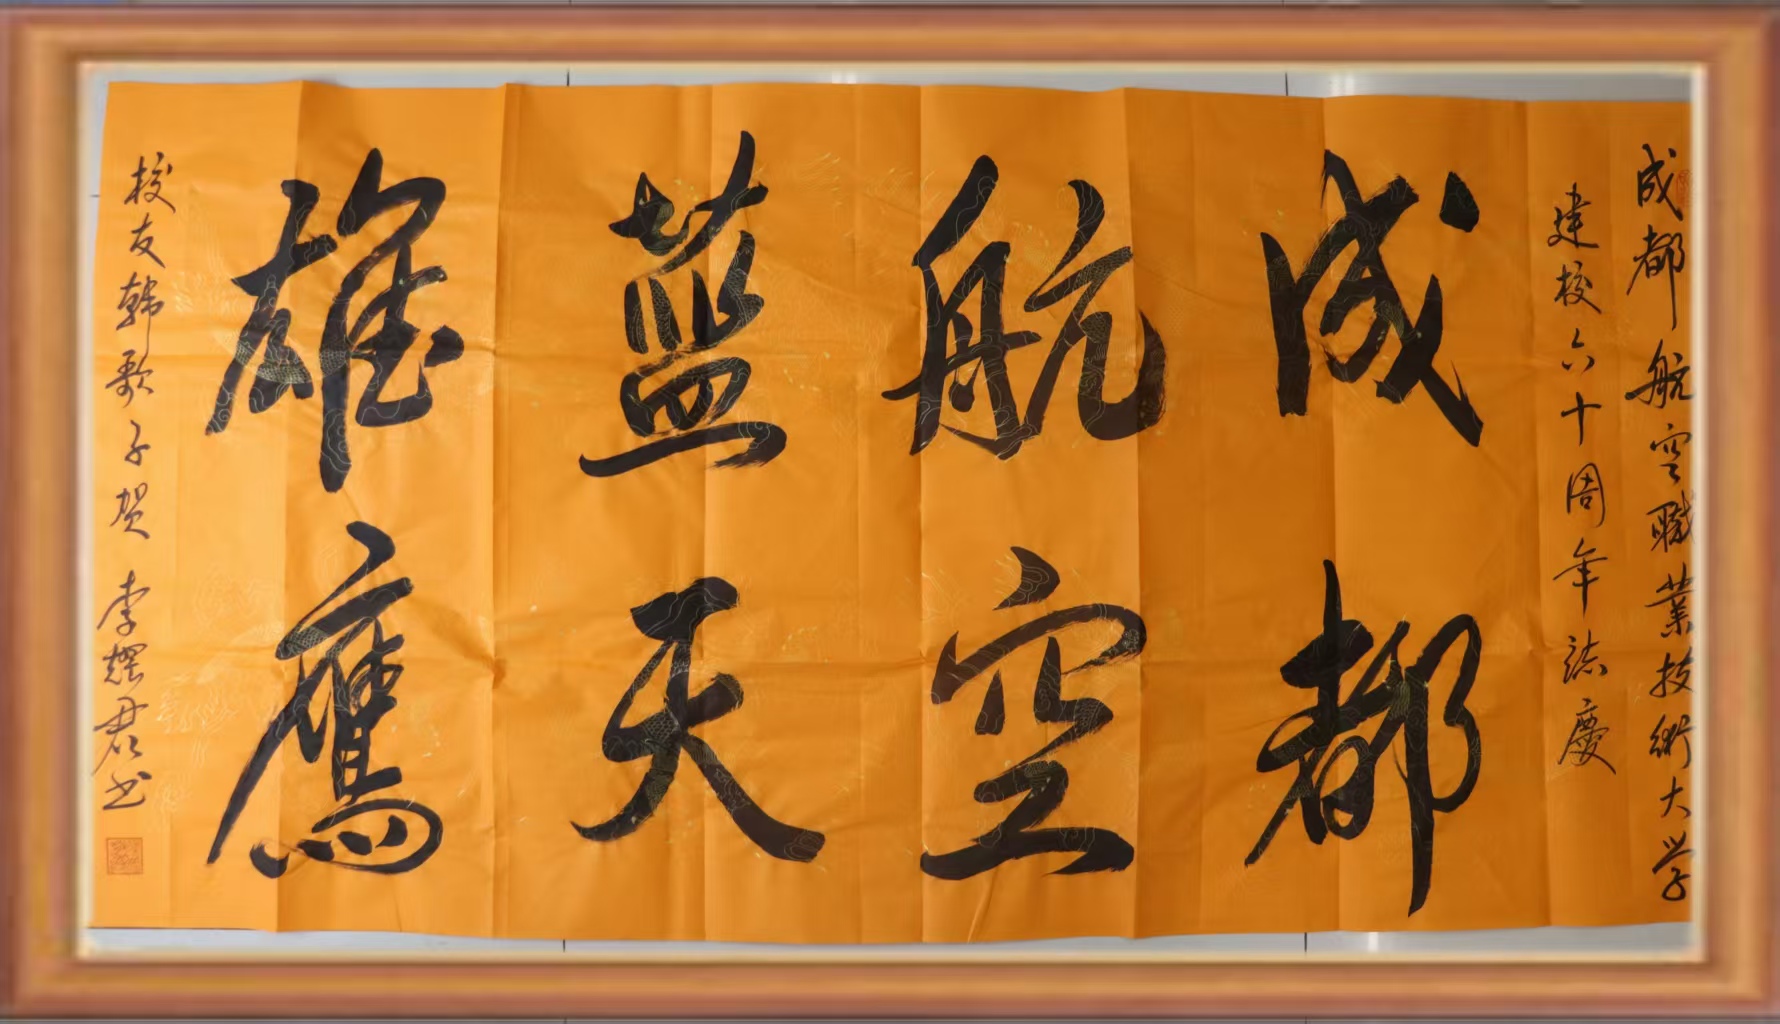 成都航空職業技術大学
建校六十周年誌慶
成都
航空
藍天
雄鷹
校友韩歌子贺 李耀君书